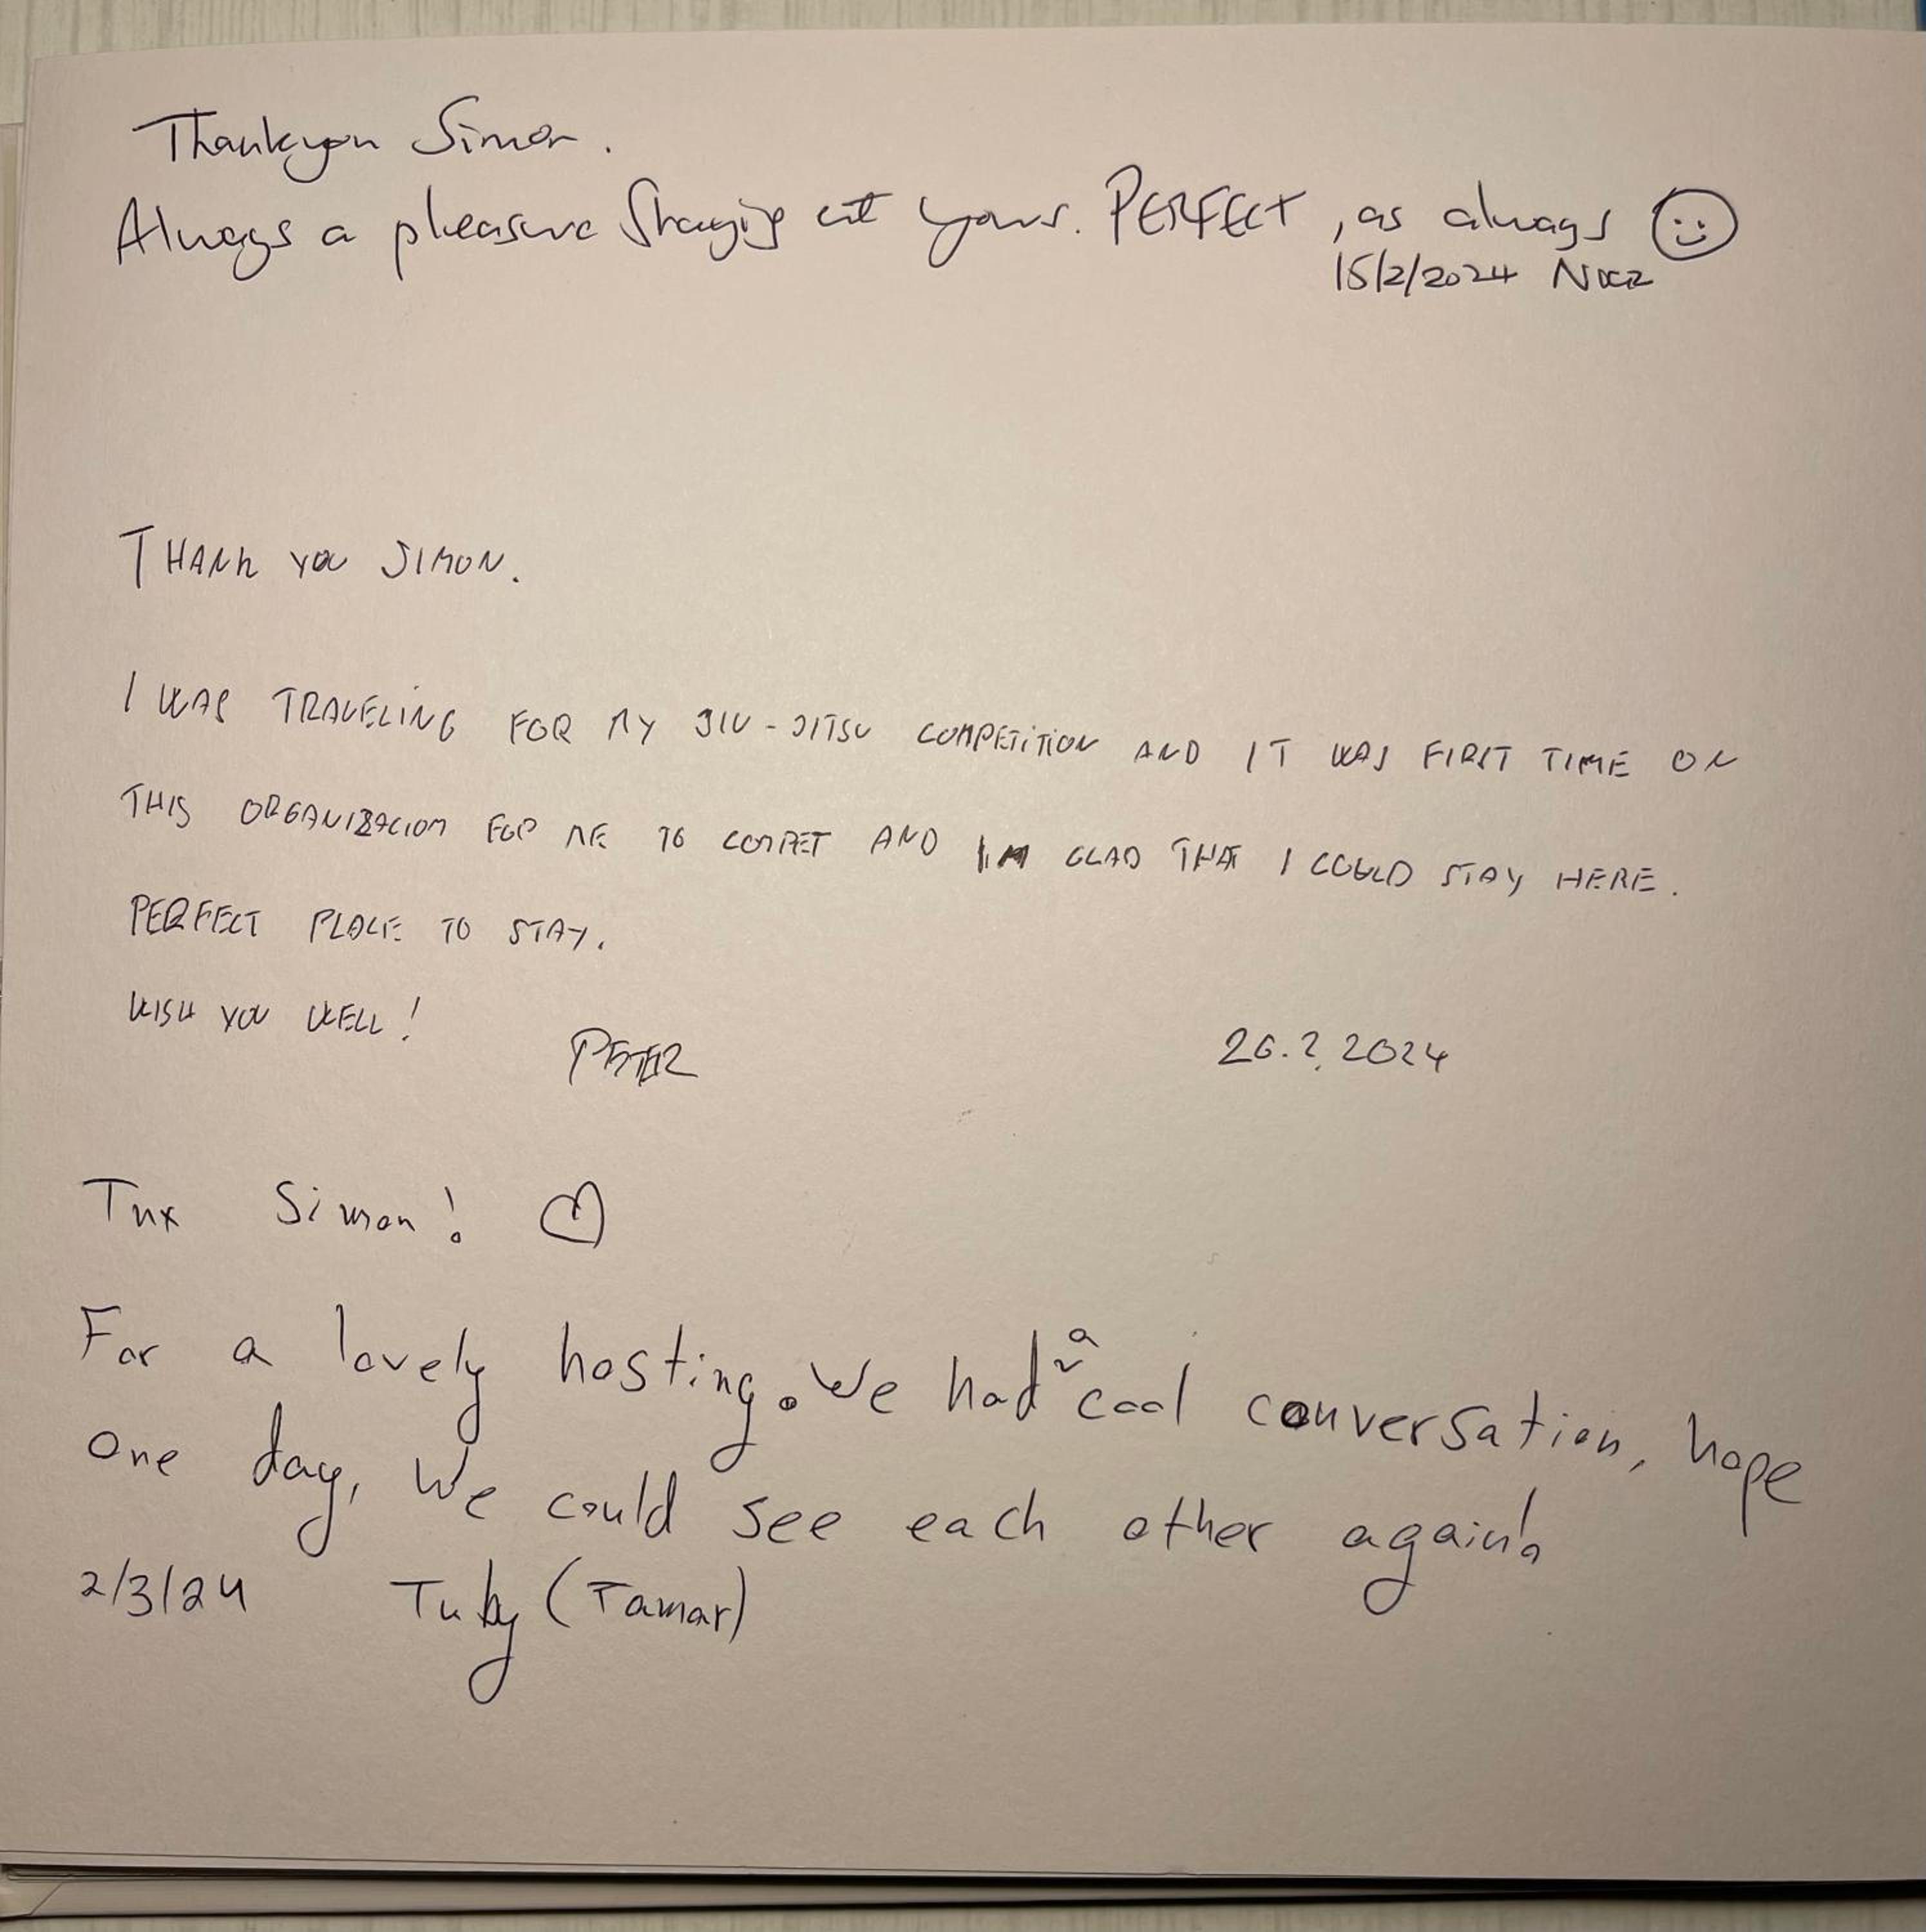 Thankyou Simon.
Always a pleasure staying at yours. PERFECT, as always
15/2/2024
THANK YOU SIMON.
I WAS TRAVELING FOR MY JIU-JITSU COMPETITION AND IT WAS FIRST TIME ON
THIS ORGANIZACION FOR ME TO COMPET AND I'M GLAD THAT I COULD STAY HERE.
PERFECT PLACE TO STAY.
WISH YOU WELL!
PETER 26.2.2024
Tnx Simon! ♡
For a lovely hosting. We had a cool conversation, hope
one day, we could see each other again!
2/3/24 Tuby (Tamar)